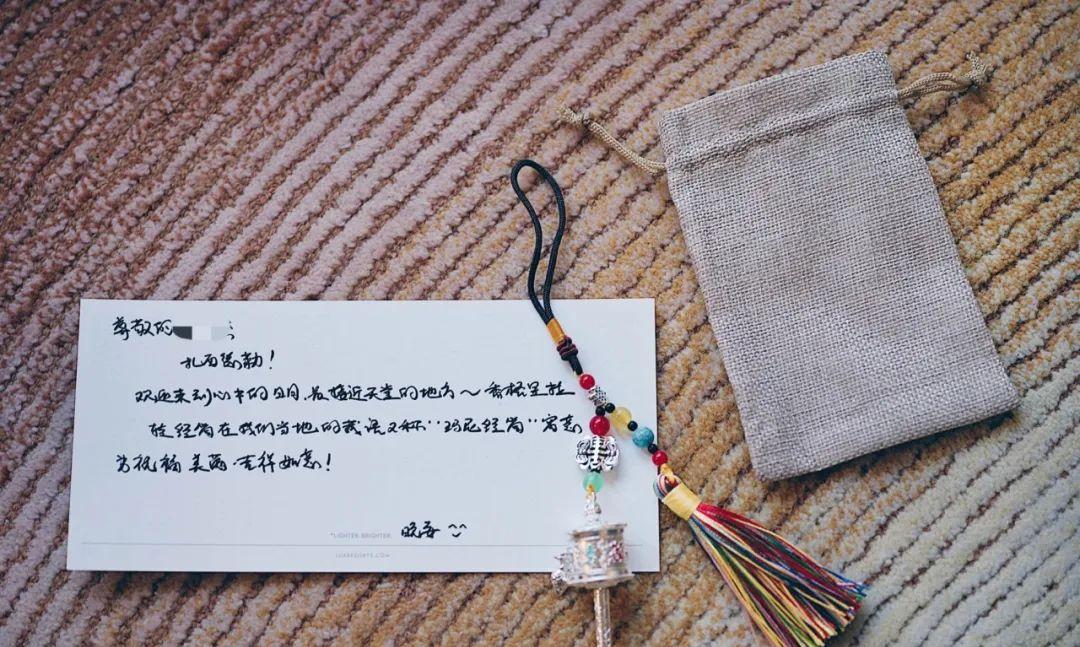 尊敬的
扎西德勒！
欢迎来到心中的日月，最接近天堂的地方～香格里拉
转经筒在我们当地的藏语又称“玛尼经筒”寓意
为祝福 美丽 吉祥如意！
晓海
*LIGHTER. BRIGHTER.
LUXREGISTS.COM